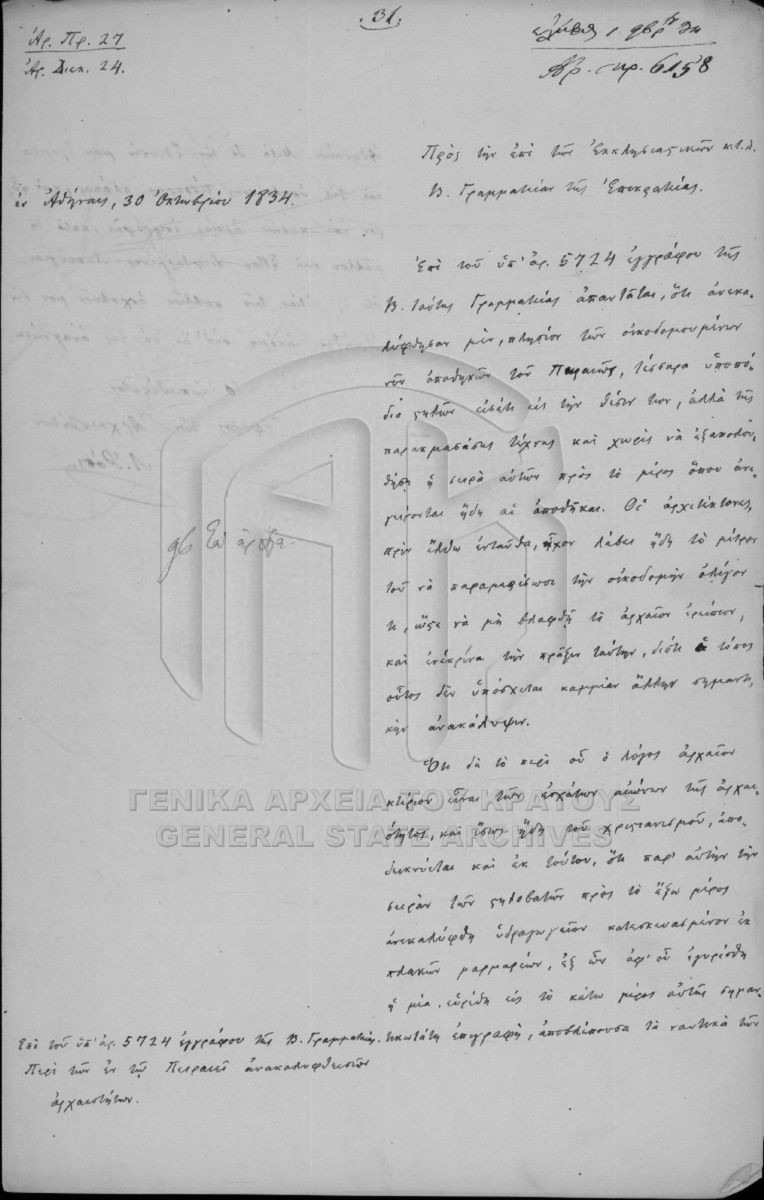 31.
Ἀρ. Πρ. 27
Ἀρ. Διεκ. 24.
ἐλήφθη 1. 9βρ 34
Ἀρ. πρ. 6158
Πρὸς τὴν ἐπὶ τῶν Ἐκκλησιαςικῶν κ.τ.λ.
Β. Γραμματείαν τῆς Ἐπικρατείας.
ἐν Ἀθήναις, 30 Ὀκτωβρίου 1834.
Ἐπὶ τοῦ ὑπ' ἀρ. 5724 ἐγγράφου τῆς
Β. ταύτης Γραμματείας ἀπαντᾶται, ὅτι ἀνεκα-
λύφθησαν μὲν, πλησίον τῶν οἰκοδομουμένων
νῦν ἀποθηκῶν τοῦ Πειραιῶς, τέσσαρα ὑποπό-
δια ςηλῶν εἰσέτι εἰς τὴν θέσιν των, ἀλλὰ τῆς
παρακμασάσης τέχνης καὶ χωρὶς νὰ ἐξακολου-
θήσῃ ἡ σειρὰ αὐτῶν πρὸς τὸ μέρος ὅπου ἀνε-
γείρονται ἤδη αἱ ἀποθῆκαι. Οἱ ἀρχιτέκτονες,
πρὶν ἔλθω ἐνταῦθα, εἶχον λάβει ἤδη τὸ μέτρον
τοῦ νὰ παραμερίσωσι τὴν οἰκοδομὴν ὀλίγον
τι, ὥςε νὰ μὴ βλαφθῇ τὸ ἀρχαῖον ἐρείπιον,
καὶ ἐνέκρινα τὴν πρᾶξιν ταύτην, διότι ὁ τόπος
οὗτος δὲν ὑπόσχεται καμμίαν ἄλλην σημαντι-
κὴν ἀνακάλυψιν.
Ὅτι δὲ τὸ περὶ οὗ ὁ λόγος ἀρχαῖον
κτίριον εἶναι τῶν ἐσχάτων αἰώνων τῆς ἀρχαι-
ότητος, καὶ ἴσως ἤδη τοῦ χριςιανισμοῦ, ἀπο-
δεικνύεται καὶ ἐκ τούτου, ὅτι παρ' αὐτὴν τὴν
σειρὰν τῶν ςηλοβατῶν πρὸς τὸ ἔξω μέρος
ἀνεκαλύφθη ὑδραγωγεῖον κατεσκευασμένον ἐκ
πλακῶν μαρμαρίνων, ἐξ ὧν ἀφ' οὗ ἐγυρίσθη
ἡ μία, εὑρέθη εἰς τὸ κάτω μέρος αὐτῆς σημαν-
τικωτάτη ἐπιγραφή, ἀποβλέπουσα τὰ ναυτικὰ τῶν
Ἐπὶ τοῦ ὑπ' ἀρ. 5724 ἐγγράφου τῆς Β. Γραμματείας.
Περὶ τῶν ἐν τῷ Πειραιεῖ ἀνακαλυφθεισῶν
ἀρχαιοτήτων.
ΓΕΝΙΚΑ ΑΡΧΕΙΑ ΤΟΥ ΚΡΑΤΟΥΣ
GENERAL STATE ARCHIVES